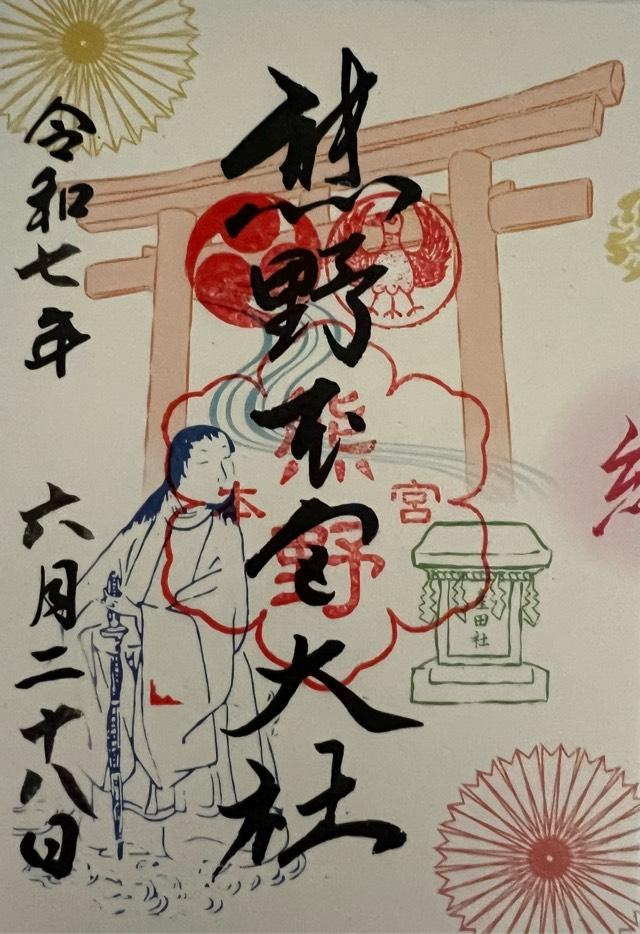 熊野本宮大社
令和七年
六月二十八日
熊野
本宮
田社